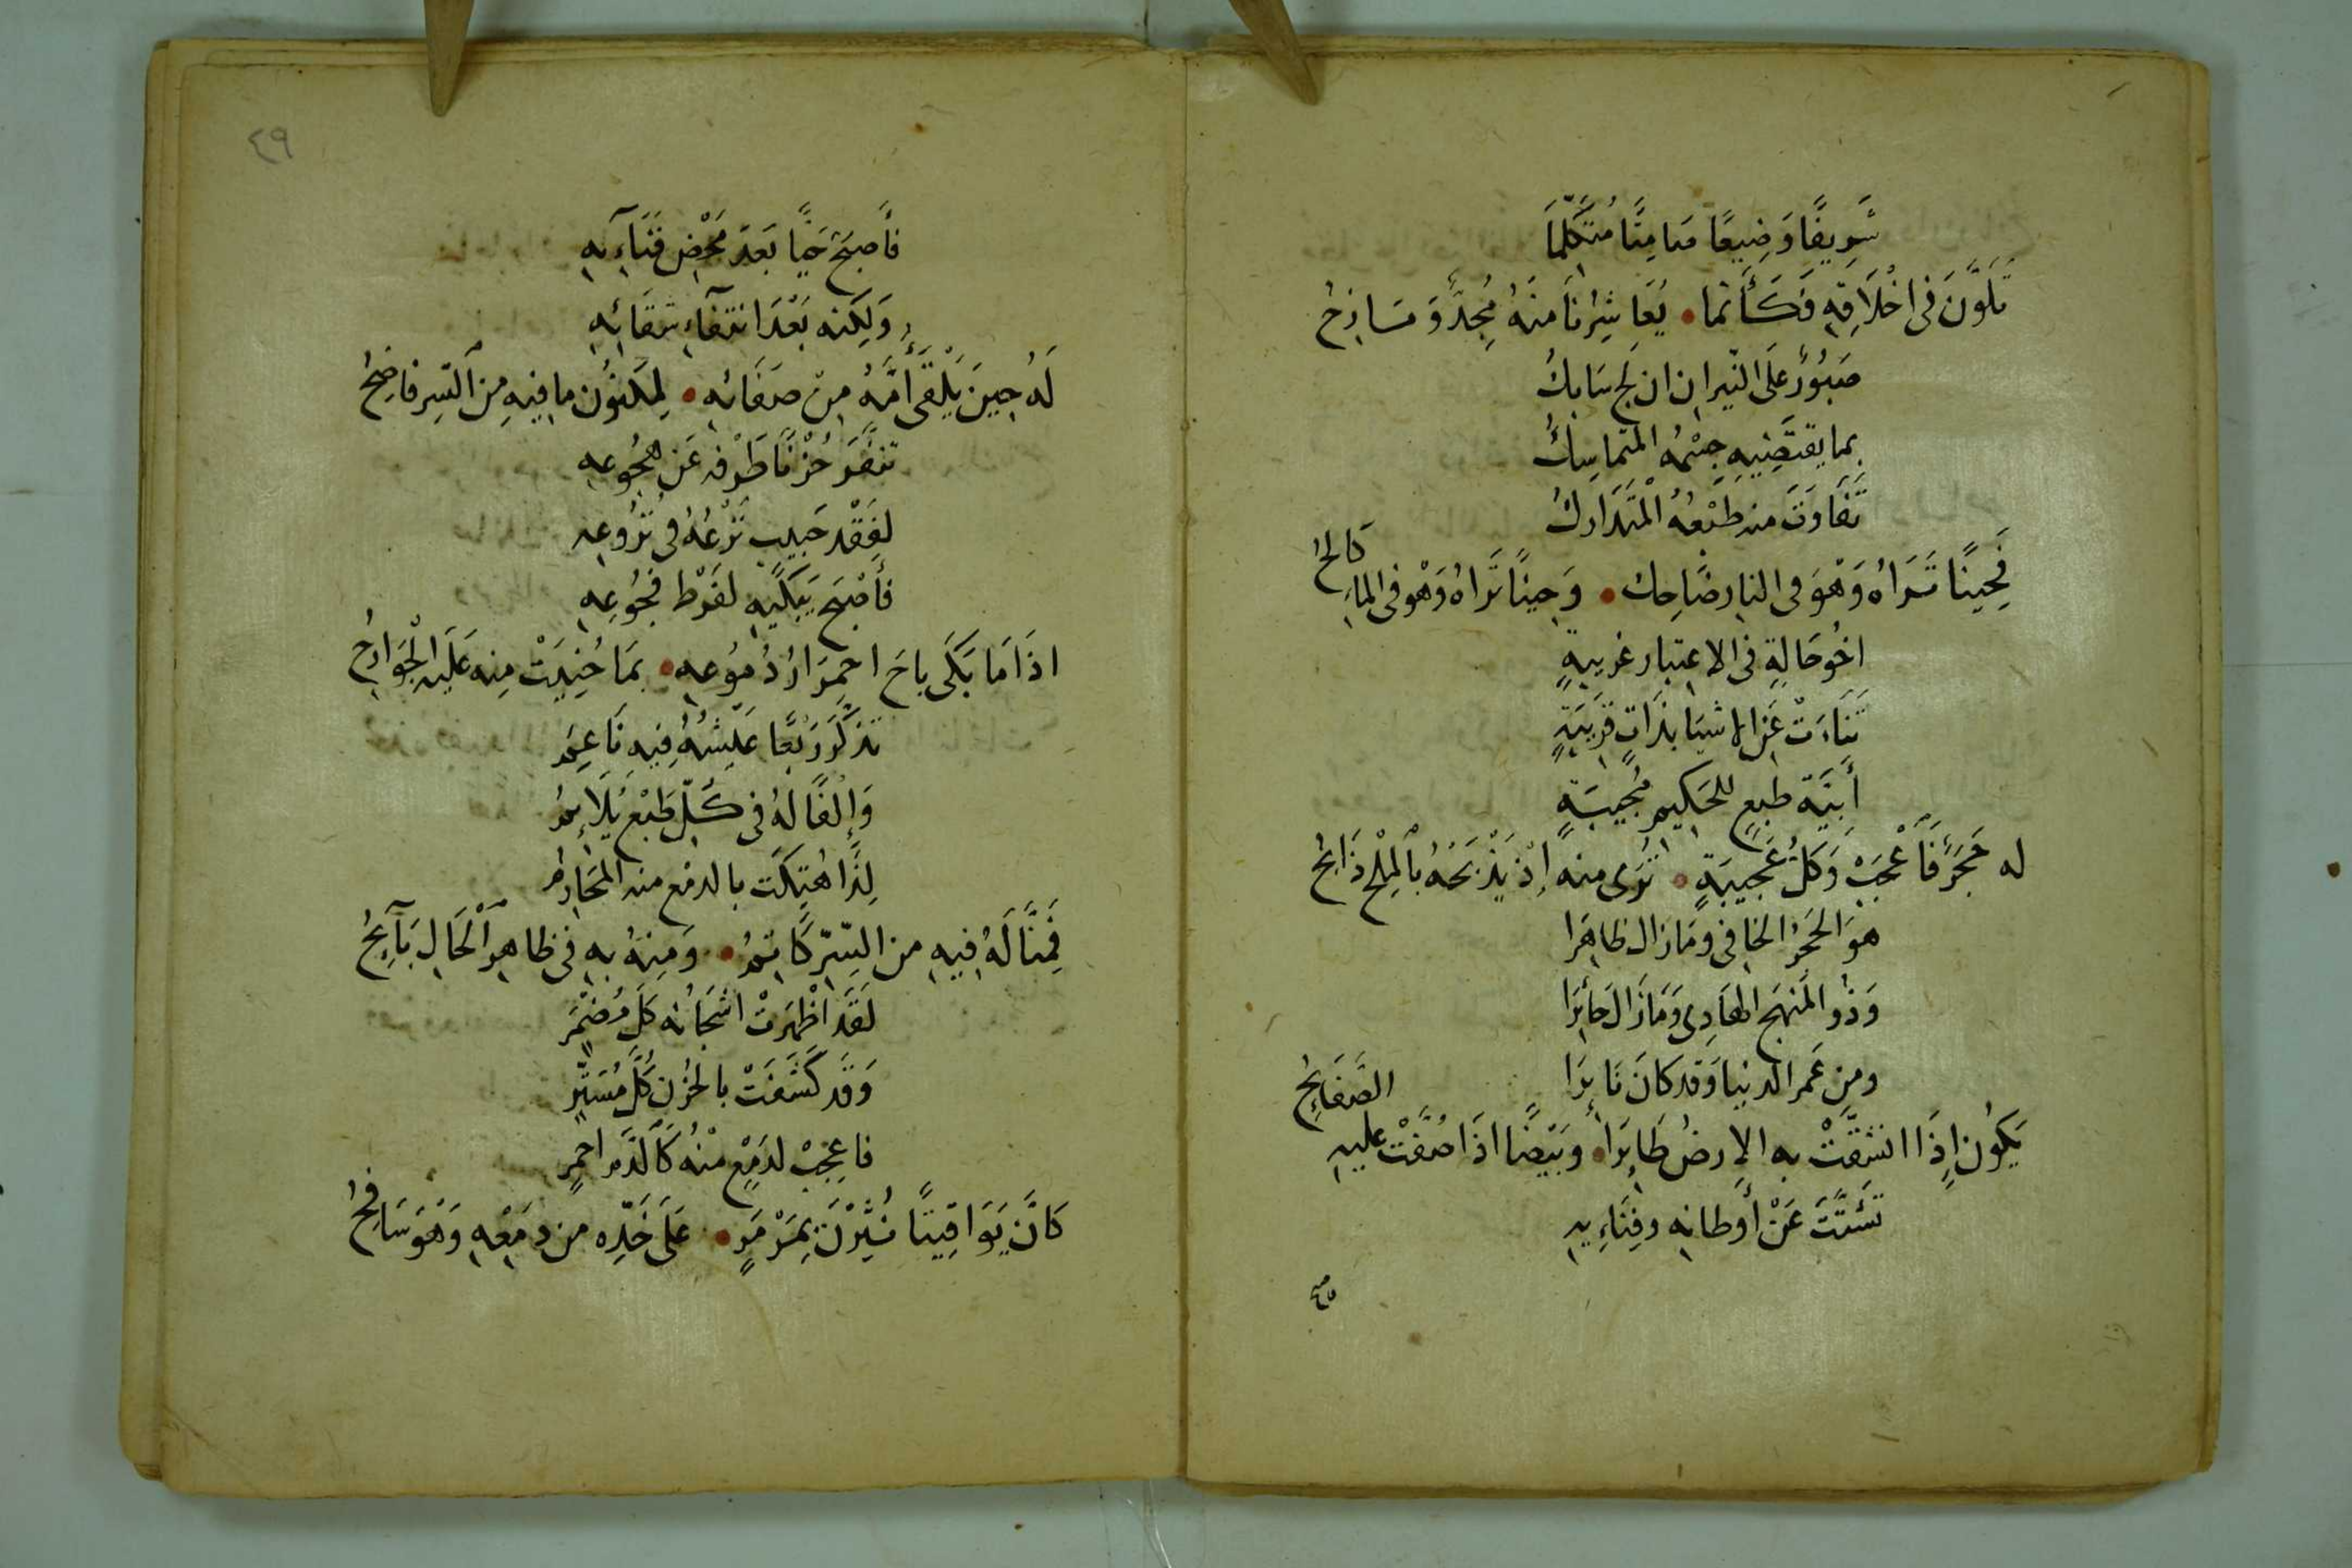 شَرِيفًا وَضِيعًا صَامِتًا مُتَكَلِّمَا
تَلَوَّنَ فى اخْلَاقِهِ فَكَأَنَّما • يُعَاشِرُنا مَنْهُ مُجِدٌّ وَمَازِحُ
صَبُورٌ عَلَى النّيرانِ ان لجَّ سَابكُ
بما يقتضِيهِ جِسْمُهُ المتماسِكُ
تَفَاوَتَ منه طَبْعُهُ الْمتَدَارِكُ
فَحِينًا تَرَاهُ وَهْوَ فى النارِ ضَاحِك • وَحِينًا تَراهُ وَهْو فى الماءِ كَالحُ
اخُو حَالةٍ فى الاعتبار غريبةٍ
تَنَاءَتْ عَنِ الاشيَا بذَاتٍ قَرِيبَةٍ
أَبِيَّة طبعٍ للحَكيمِ مُجيبَةٍ
له حَجَرٌ فَأَعْجَبْ وَكلُّ عَجيبَةٍ • تُرَى منه إِذْ يَذْبَحْهُ بالْمِلْحِ ذَابحُ
هوَ الحَجَرُ الخافى ومَا زال ظاهِرَا
وَذُو المَنهَجِ الهَادِى وَمَا زَالَ حَائِرَا
ومِن عَمر الدنيا وَقد كانَ نَائِرَا
يَكُون إِذَا انشَقَّتْ بهِ الارضُ طَايِرَا • وبَيْضًا اذَا صُفَّتْ عليهِ الصَّفَايِحُ
تَشَتَّتَ عَنْ أَوطانِهِ وفِنَاءِيهِ
٤٩
فأَصبَحَ حَيًّا بَعدَ مَحْضِ فَنَآءِيهِ
وَلكِنه بَعْدَ انتفآءِ شَقَائِهِ
لَهُ حِينَ يَلْقَى أُمَّهُ مِنْ صَفَائهِ • لمكنُون ما فيهِ مِنَ السِّر فاضِحُ
تنفَّرَ حُزْنًا طَرْفه عَن هُجُوعِهِ
لِفَقْد حَبيبٍ نَزْعُهُ فى نُزُوعِهِ
فأَصْبَحَ يَبكيهِ لفَرْط فجُوعِهِ
اذَا مَا بَكَى باحَ احمِرَارُ دُموُعهِ • بمَا حُنِيَتْ مِنه عَلَيهِ الْجَوَارِحُ
تذكَّرَ رَبْعًا عَيْشُهُ فِيهِ نَاعِمُ
وَإِلْفًا لهُ فى كلّ طَبْعٍ يُلَائِمُ
لِذَا هُتِكَت بالدمْع منه المَحَارِمُ
فَمِنَّا لَهُ فيهِ من السِّرّ كَاتمُ • وَمِنهُ بهِ فى ظاهِرِ الْحَالِ بَآئِحُ
لَقَد اظْهَرتْ اشجَانُه كلَ مُضْمَرٍ
وَقَد كَشَفَتْ بالحُزنِ كُلَّ مُسَتَّرِ
فاعِجبْ لدَمْعٍ منْهُ كَالَّدَمِ احمرٍ
كانَّ يَوَاقيتًا نُثِرْنَ بمَرْمَرٍ • عَلَى خَدِّه من دمَعِهِ وَهْوَ سَافِحُ